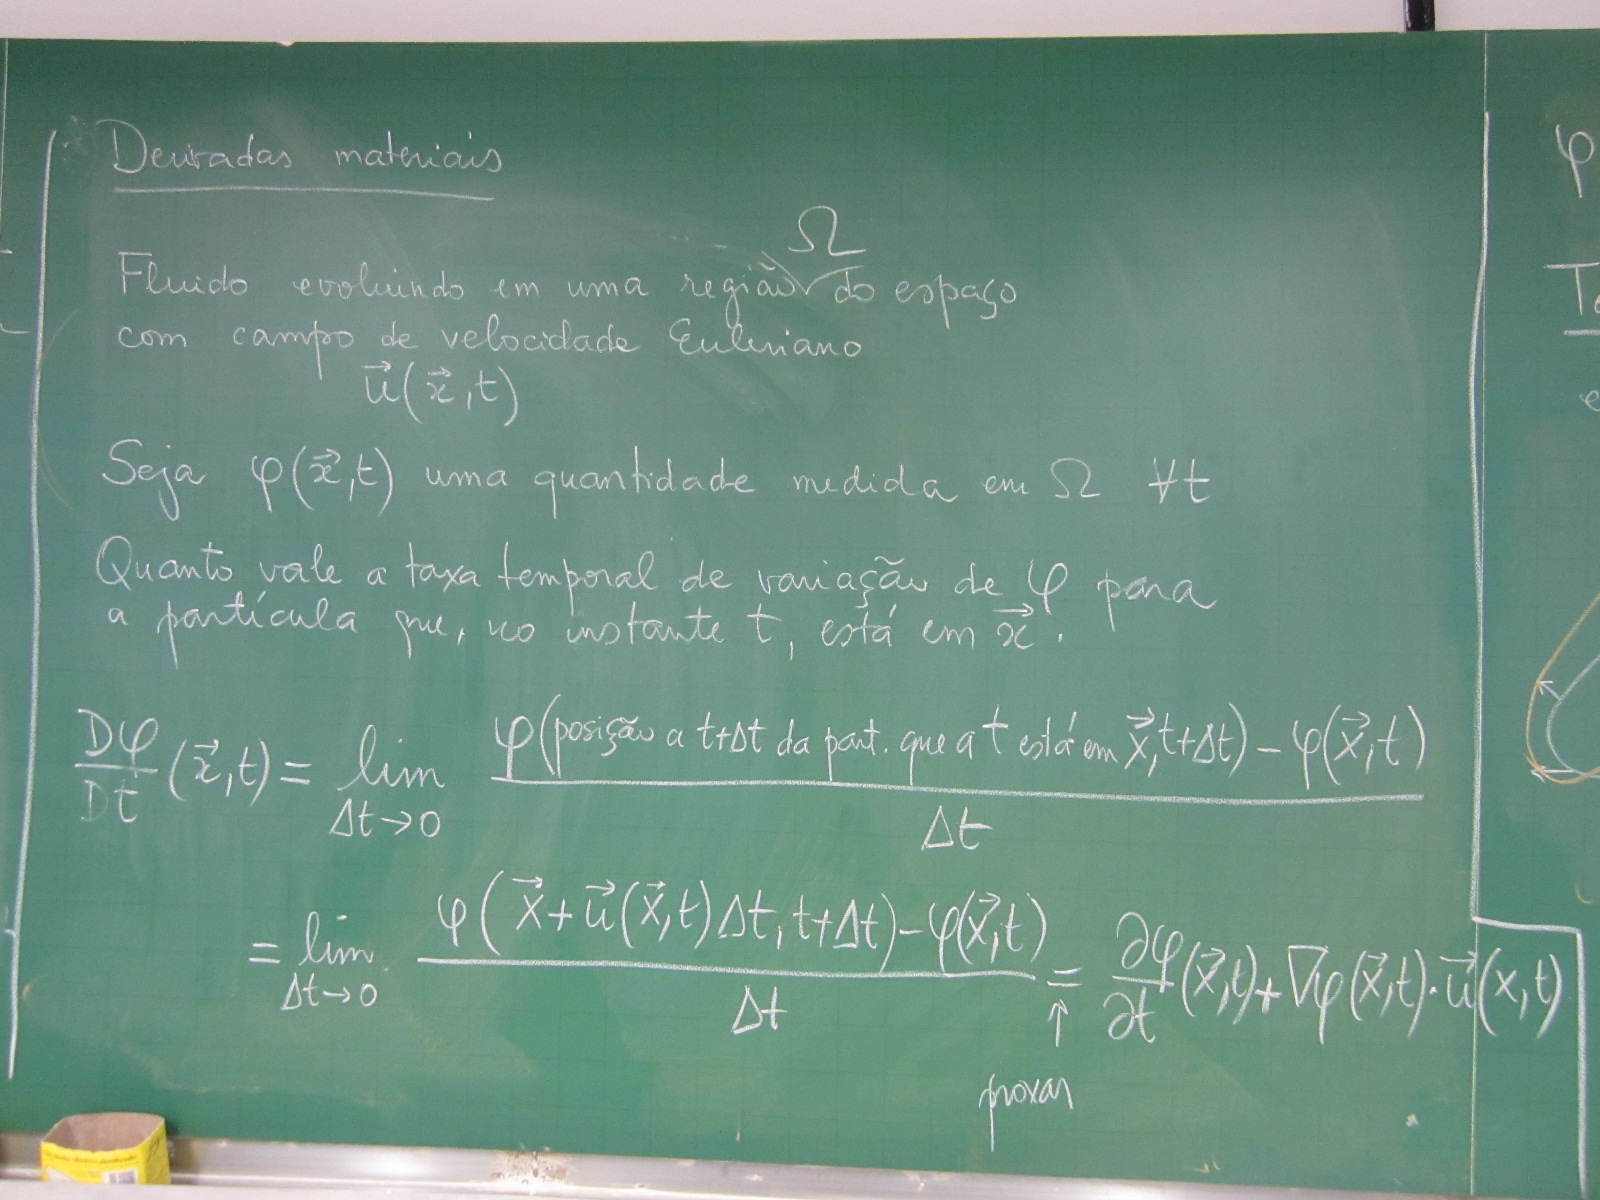 Derivadas materiais
Ω
Fluido evoluindo em uma região do espaço
com campo de velocidade Euleriano
u⃗(x⃗,t)
Seja φ(x⃗,t) uma quantidade medida em Ω ∀t
Quanto vale a taxa temporal de variação de φ para
a partícula que, no instante t, está em x⃗.
Dφ/Dt (x⃗,t) = lim Δt→0 [φ(posição a t+Δt da part. que a t está em x⃗,t+Δt) − φ(x⃗,t)] / Δt
= lim Δt→0 [φ(x⃗+u⃗(x⃗,t)Δt, t+Δt) − φ(x⃗,t)] / Δt = ∂φ/∂t (x⃗,t) + ∇φ(x⃗,t)·u⃗(x,t)
↑
provar
φ